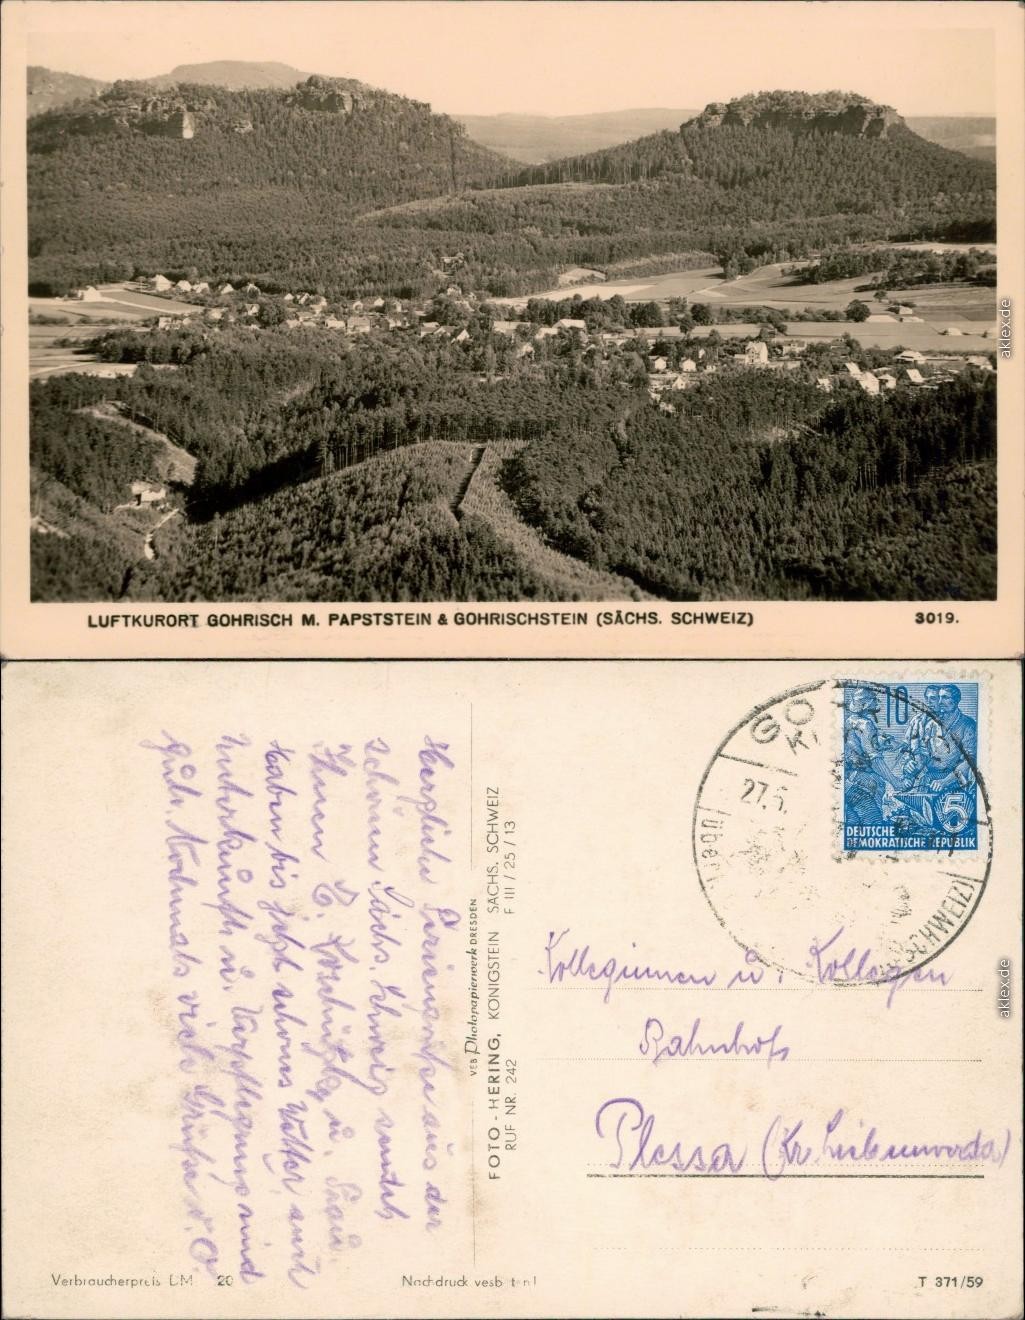 LUFTKURORT GOHRISCH M. PAPSTSTEIN & GOHRISCHSTEIN (SÄCHS. SCHWEIZ)
3019.
aklex.de
Herzliche Feriengrüße aus der
schönen Sächs. Schweiz sendet
Ihnen E. u. Frau.
Haben bis jetzt schönes Wetter, auch
Unterkunft u. Verpflegung sind
gut. Nochmals viele Grüße d. O.
VEB Photopapierwerk DRESDEN
FOTO-HERING, KÖNIGSTEIN SÄCHS. SCHWEIZ
RUF NR. 242
F III/25/13
GO
27.
über
SCHWEIZ)
10
5
DEUTSCHE
DEMOKRATISCHE REPUBLIK
Kolleginnen u. Kollegen
Bahnhof
Plessa (Kr. Liebenwerda)
aklex.de
Verbraucherpreis DM 20
Nachdruck verboten!
T 371/59